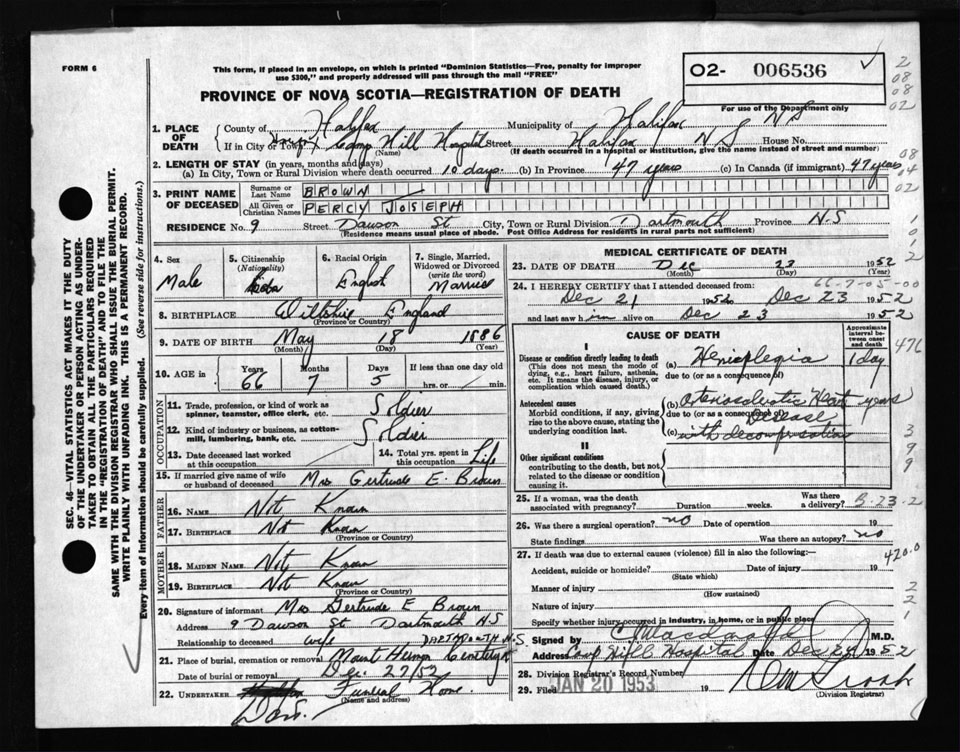 FORM 6
This form, if placed in an envelope, on which is printed "Dominion Statistics—Free, penalty for improper
use $300," and properly addressed will pass through the mail "FREE"
PROVINCE OF NOVA SCOTIA—REGISTRATION OF DEATH
O2- 006536
For use of the Department only
2
08
08
02
1. PLACE OF DEATH
County of Halifax Municipality of Halifax NS
If in City or Town Camp Hill Hospital Street Halifax NS House No.
(Name) (If death occurred in a hospital or institution, give the name instead of street and number)
2. LENGTH OF STAY (in years, months and days)
(a) In City, Town or Rural Division where death occurred 10 days. (b) In Province 47 years (c) In Canada (if immigrant) 47 years
08
04
02
3. PRINT NAME OF DECEASED
Surname or Last Name BROWN
All Given or Christian Names PERCY JOSEPH
RESIDENCE No. 9 Street Dawson St City, Town or Rural Division Dartmouth Province N.S
(Residence means usual place of abode. Post Office Address for residents in rural parts not sufficient)
4. Sex
Male
5. Citizenship
(Nationality)
6. Racial Origin
English
7. Single, Married, Widowed or Divorced
(write the word)
Married
8. BIRTHPLACE Wiltshire England
(Province or Country)
9. DATE OF BIRTH May 18 1886
(Month) (Day) (Year)
10. AGE in Years Months Days If less than one day old
66 7 5 hrs. or min.
OCCUPATION
11. Trade, profession, or kind of work as spinner, teamster, office clerk, etc. Soldier
12. Kind of industry or business, as cotton-mill, lumbering, bank, etc. Soldier
13. Date deceased last worked at this occupation
14. Total yrs. spent in this occupation Life
15. If married give name of wife or husband of deceased Mrs Gertrude E. Brown
FATHER
16. NAME Not Known
17. BIRTHPLACE Not Known
(Province or Country)
MOTHER
18. MAIDEN NAME Not Known
19. BIRTHPLACE Not Known
(Province or Country)
20. Signature of informant Mrs Gertrude E Brown
Address 9 Dawson St Dartmouth N.S
Relationship to deceased wife DARTMOUTH N.S.
21. Place of burial, cremation or removal Mount Hermon Cemetery
Date of burial or removal Dec. 27/52
22. UNDERTAKER Funeral Home
(Name and address)
Dart.
MEDICAL CERTIFICATE OF DEATH
23. DATE OF DEATH Dec 23 1952
(Month) (Day) (Year)
24. I HEREBY CERTIFY that I attended deceased from: 66-7-05-00
Dec 21 1952 Dec 23 1952
and last saw him alive on Dec 23 1952
CAUSE OF DEATH
Approximate interval between onset and death
476
I
Disease or condition directly leading to death
(This does not mean the mode of dying, e.g., heart failure, asthenia, etc. It means the disease, injury, or complication which caused death.)
(a) Hemiplegia 1 day
due to (or as a consequence of)
Antecedent causes
Morbid conditions, if any, giving rise to the above cause, stating the underlying condition last.
(b) Arteriosclerotic Heart years
due to (or as a consequence of) Disease
(c) with decompensation
II
Other significant conditions
contributing to the death, but not related to the disease or condition causing it.
3
9
9
25. If a woman, was the death associated with pregnancy? Duration weeks. Was there a delivery? B-23-2
26. Was there a surgical operation? no Date of operation 19
State findings Was there an autopsy? no
27. If death was due to external causes (violence) fill in also the following:— 420.0
Accident, suicide or homicide? Date of injury 19
(State which)
Manner of injury
(How sustained)
Nature of injury
2
2
1
Specify whether injury occurred in industry, in home, or in public place
Signed by M.D.
Address Camp Hill Hospital Date Dec 24 1952
28. Division Registrar's Record Number
29. Filed JAN 20 1953 19
(Division Registrar)
SEC. 46—VITAL STATISTICS ACT MAKES IT THE DUTY
OF THE UNDERTAKER OR PERSON ACTING AS UNDER-
TAKER TO OBTAIN ALL THE PARTICULARS REQUIRED
IN THE "REGISTRATION OF DEATH" AND TO FILE THE
SAME WITH THE DIVISION REGISTRAR WHO SHALL ISSUE THE BURIAL PERMIT.
WRITE PLAINLY WITH UNFADING INK. THIS IS A PERMANENT RECORD.
Every item of information should be carefully supplied. (See reverse side for instructions.)